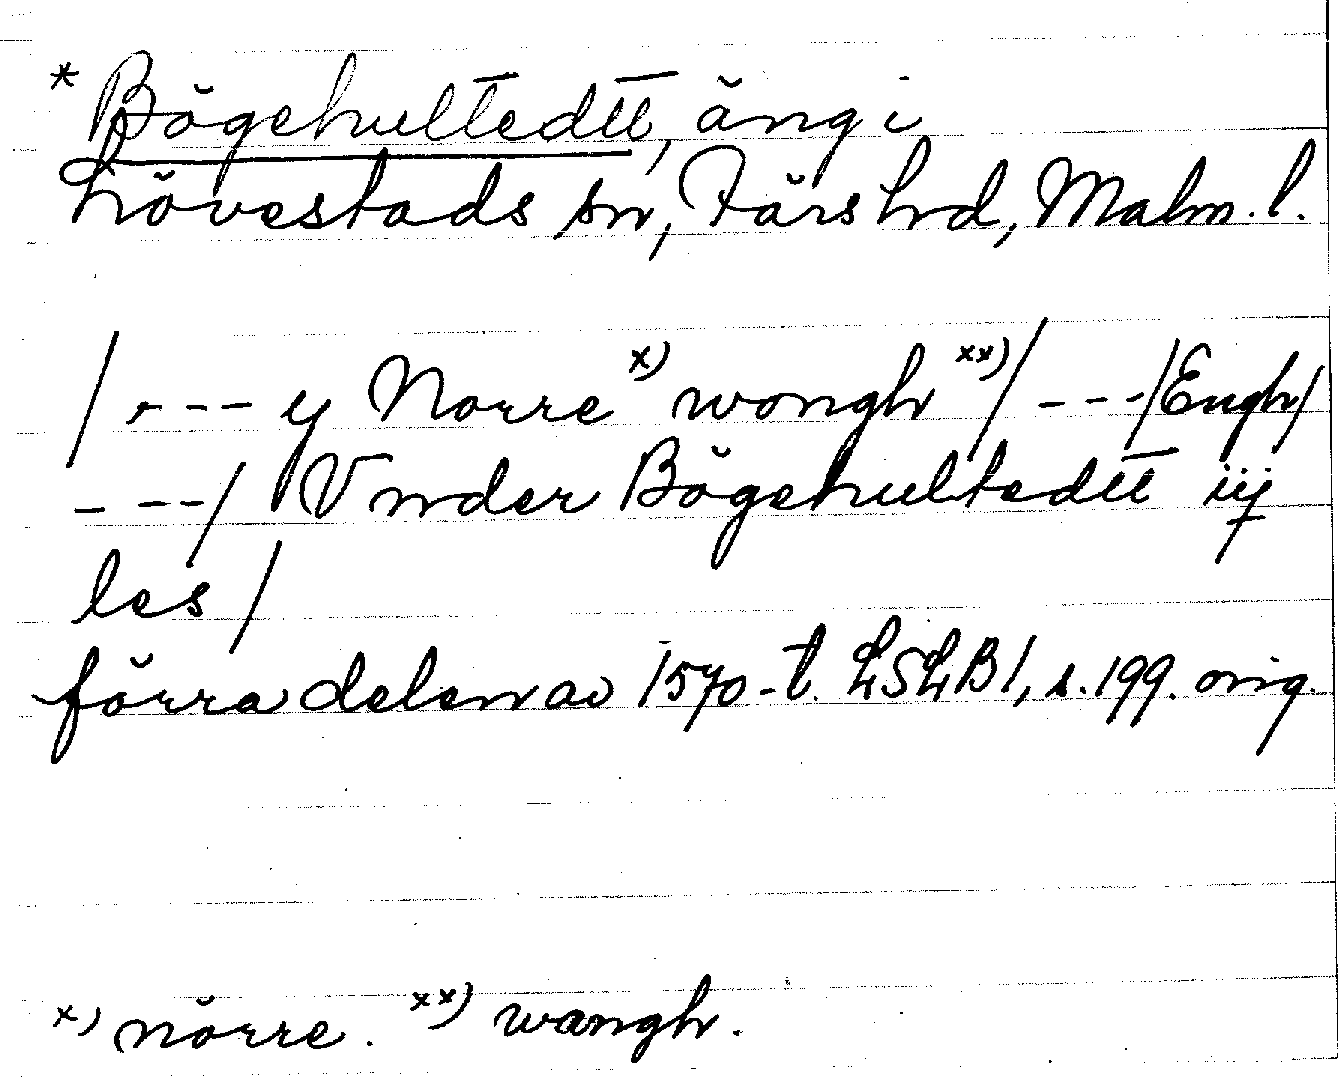 * Bögehulltedtt, äng i
Lövestads sn, Färs hrd, Malm. l.
/ --- y Norre x) wongh xx) / --- /Engh/
--- / Vnder Bögehultedtt iij
les /
förra delen av 1570-t. LSLB1, s. 199. orig.
x) nörre. xx) wangh.